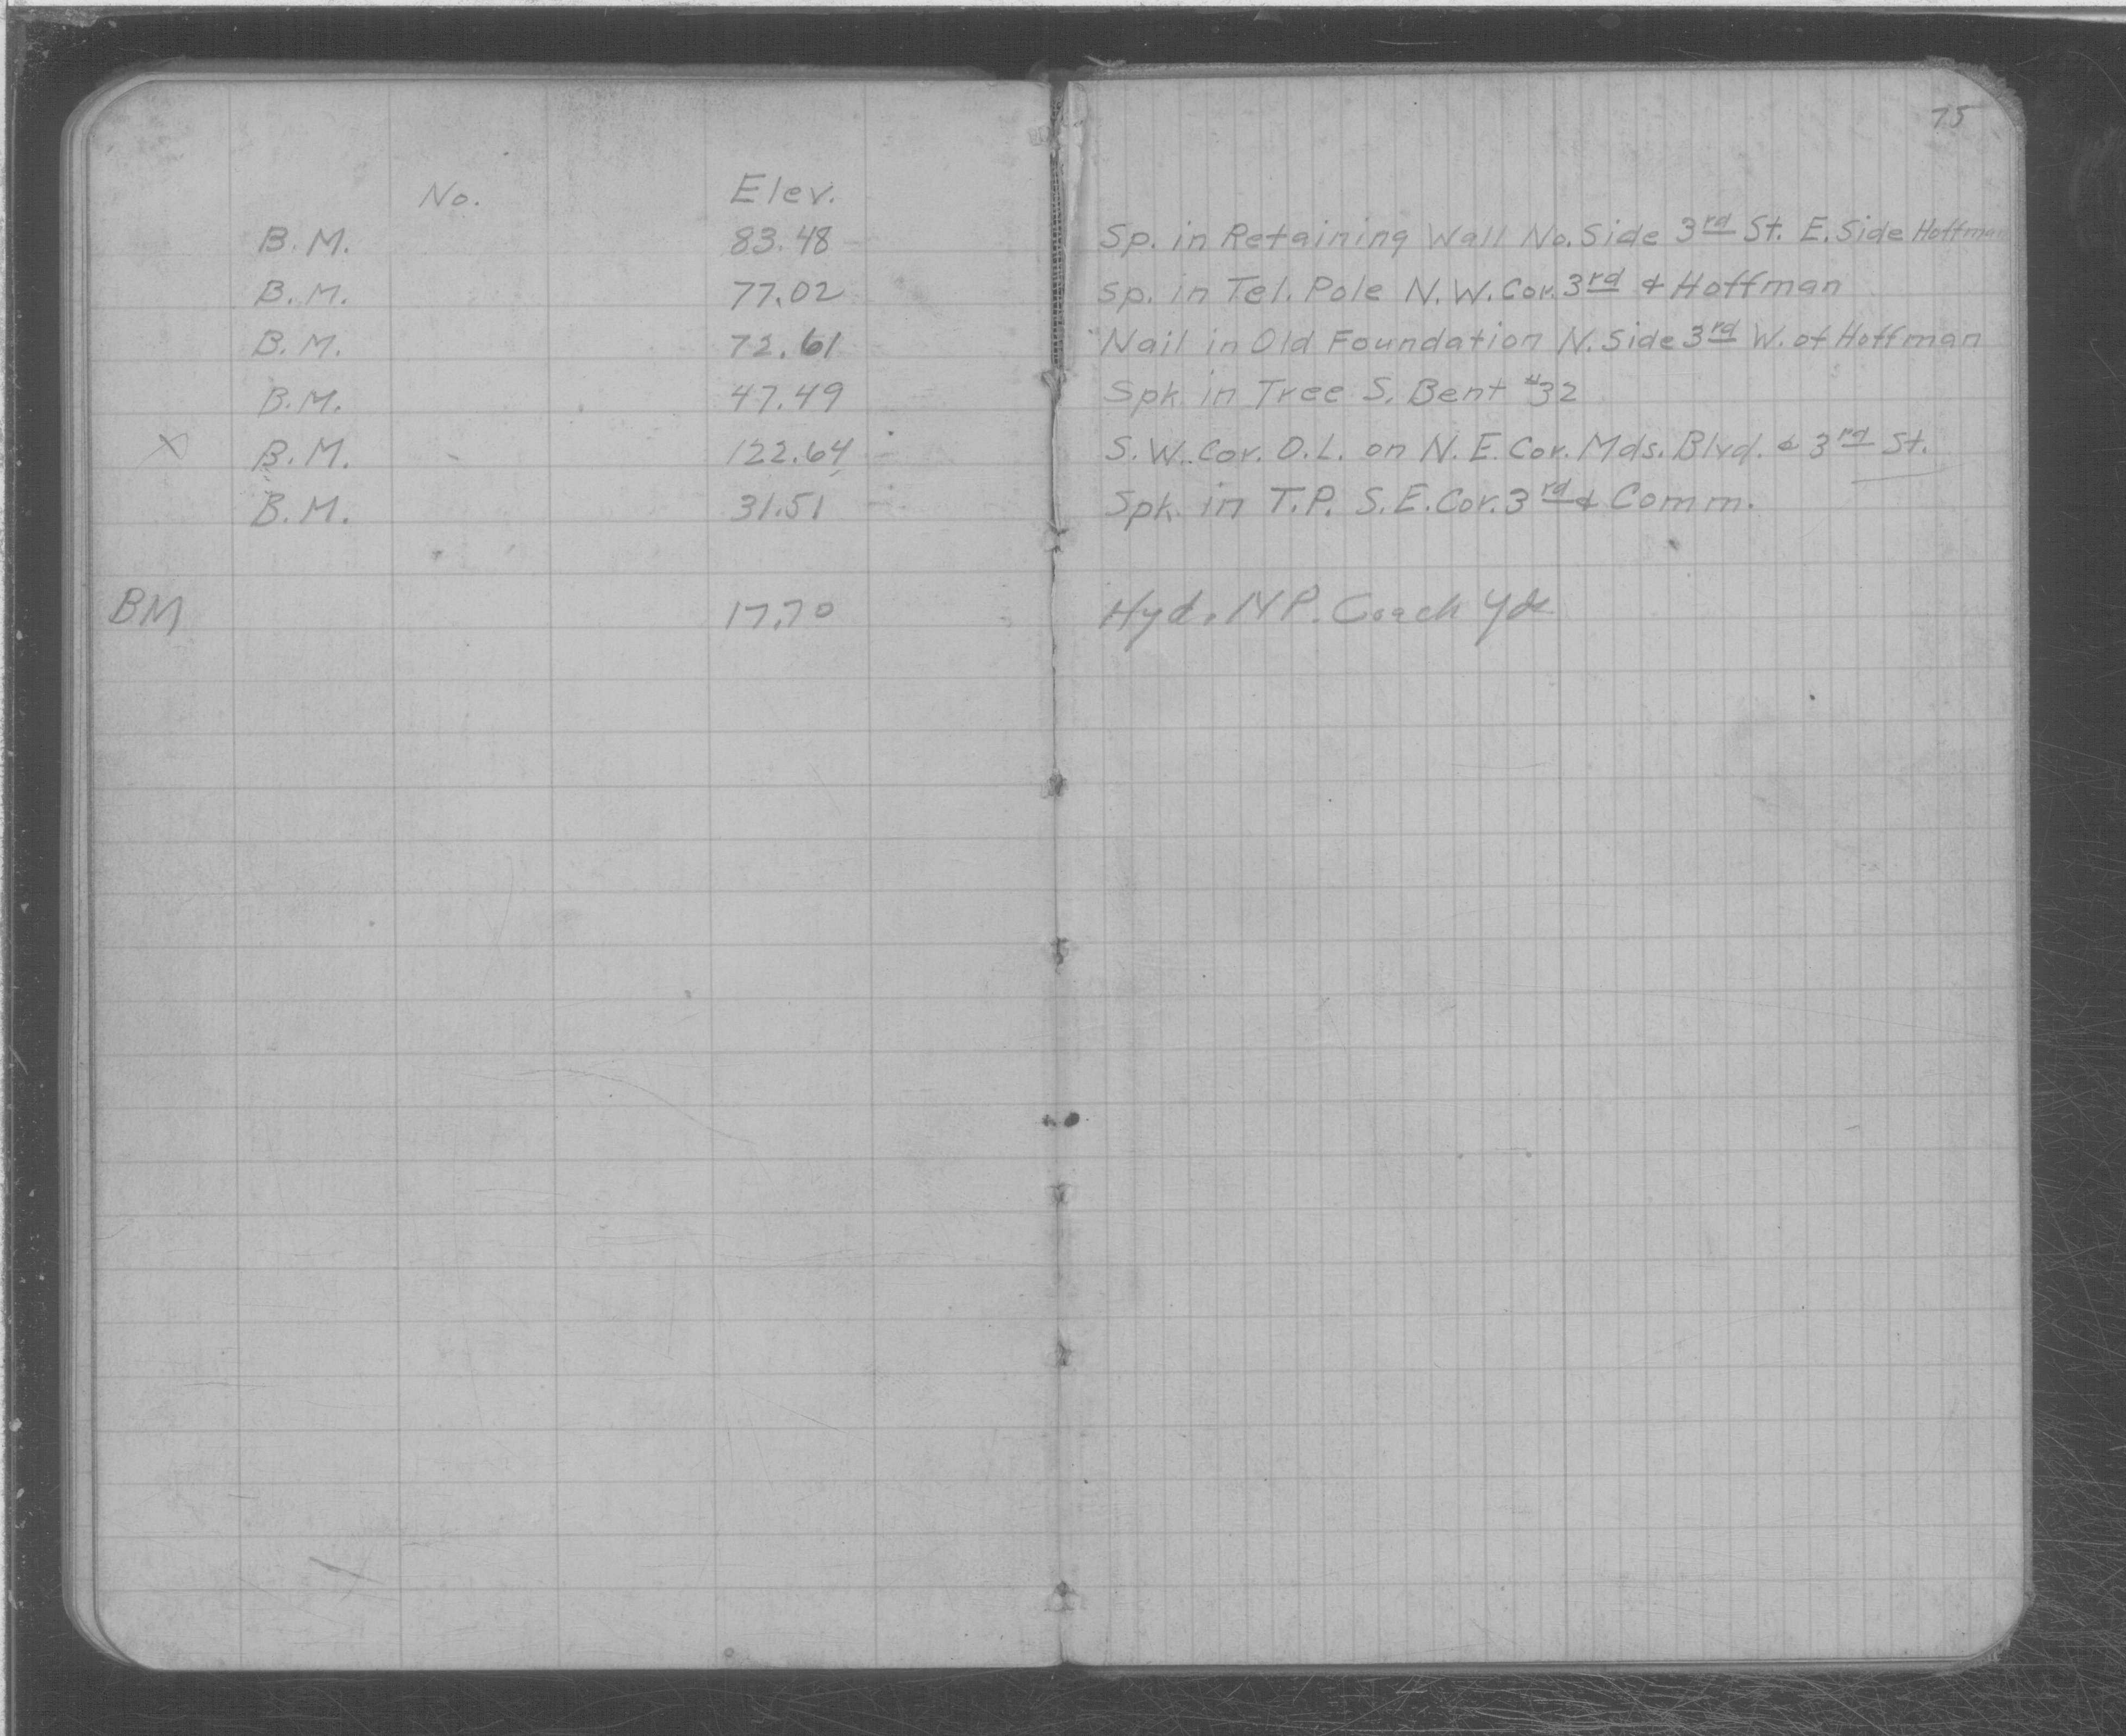 75
No. Elev.
B.M. 83.48 Sp. in Retaining Wall No. Side 3rd St. E. Side Hoffman
B.M. 77.02 Sp. in Tel. Pole N.W. Cor. 3rd & Hoffman
B.M. 72.61 Nail in Old Foundation N. Side 3rd W. of Hoffman
B.M. 47.49 Spk. in Tree S. Bent #32
X B.M. 122.64 S.W. Cor. O.L. on N.E. Cor. Mds. Blvd. & 3rd St.
B.M. 31.51 Spk. in T.P. S.E. Cor. 3rd & Comm.
BM 17.70 Hyd. N.P. Coach Yds